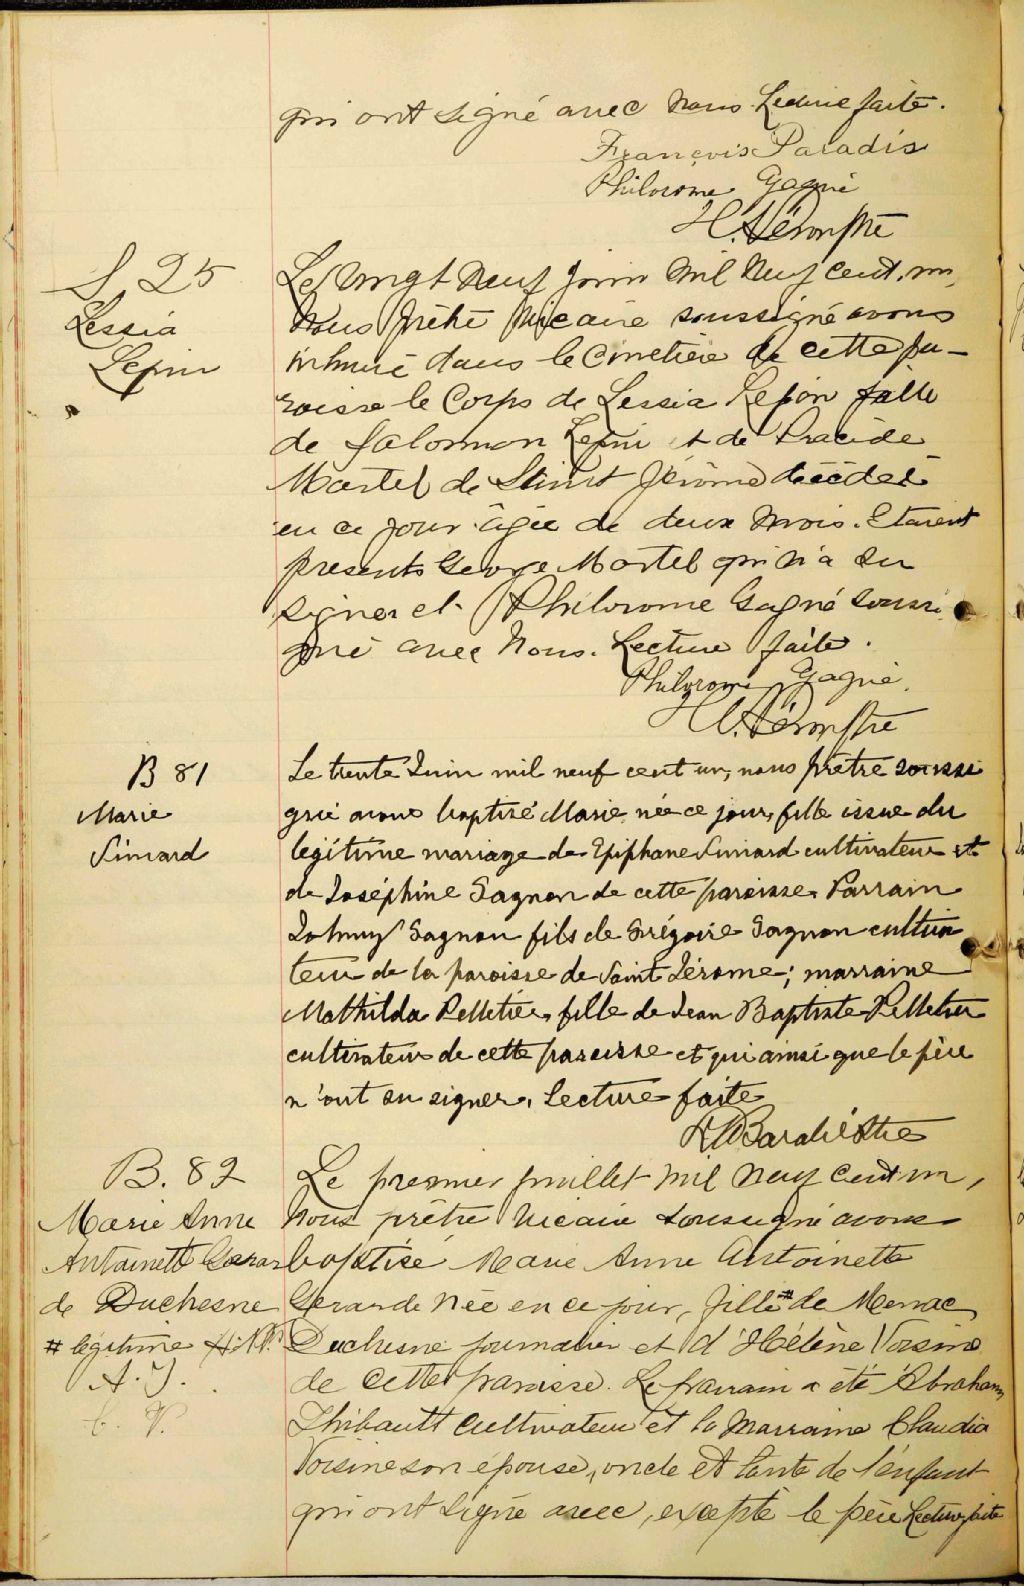 qui ont signé avec nous. Lecture faite.
François Paradis
Philorome Gagné
S 25
Lessia
Lepin
Le vingt neuf juin mil neuf cent un,
Nous prêtre Vicaire soussigné avons
inhumé dans le cimetière de cette pa-
roisse le Corps de Lessia Lepin fille
de Salomon Lepin et de Placide
Martel de Saint Jérôme décédée
en ce jour âgée de deux mois. Etaient
presents George Martel qui n'a su
signer et Philorome Gagné soussi
gné avec Nous. Lecture faite.
Philorome Gagné.
B 81
Marie
Simard
Le trente Juin mil neuf cent un, nous prêtre soussi
gné avons baptisé Marie née ce jour, fille issue du
légitime mariage de Epiphane Simard cultivateur et
de Joséphine Gagnon de cette paroisse. Parrain
Johnny Gagnon fils de Grégoire Gagnon cultiva
teur de la paroisse de Saint Jérome; marraine
Mathilda Pelletier, fille de Jean Baptiste Pelletier
cultivateur de cette paroisse et qui ainsi que le père
n'ont su signer. Lecture faite
B. 82
Marie Anne
Antoinette
de Duchesne
# légitime
A. T.
C. V.
Le premier juillet mil neuf cent un,
Nous prêtre Vicaire soussigné avons
baptisé Marie Anne Antoinette
née en ce jour, fille # de
Duchesne journalier et d'Hélène Voisine
de cette paroisse. Le parrain a été Abraham
Thibault cultivateur et la Marraine Claudia
Voisine son épouse, oncle et tante de l'enfant
qui ont signé avec, excepté le père Lecture faite